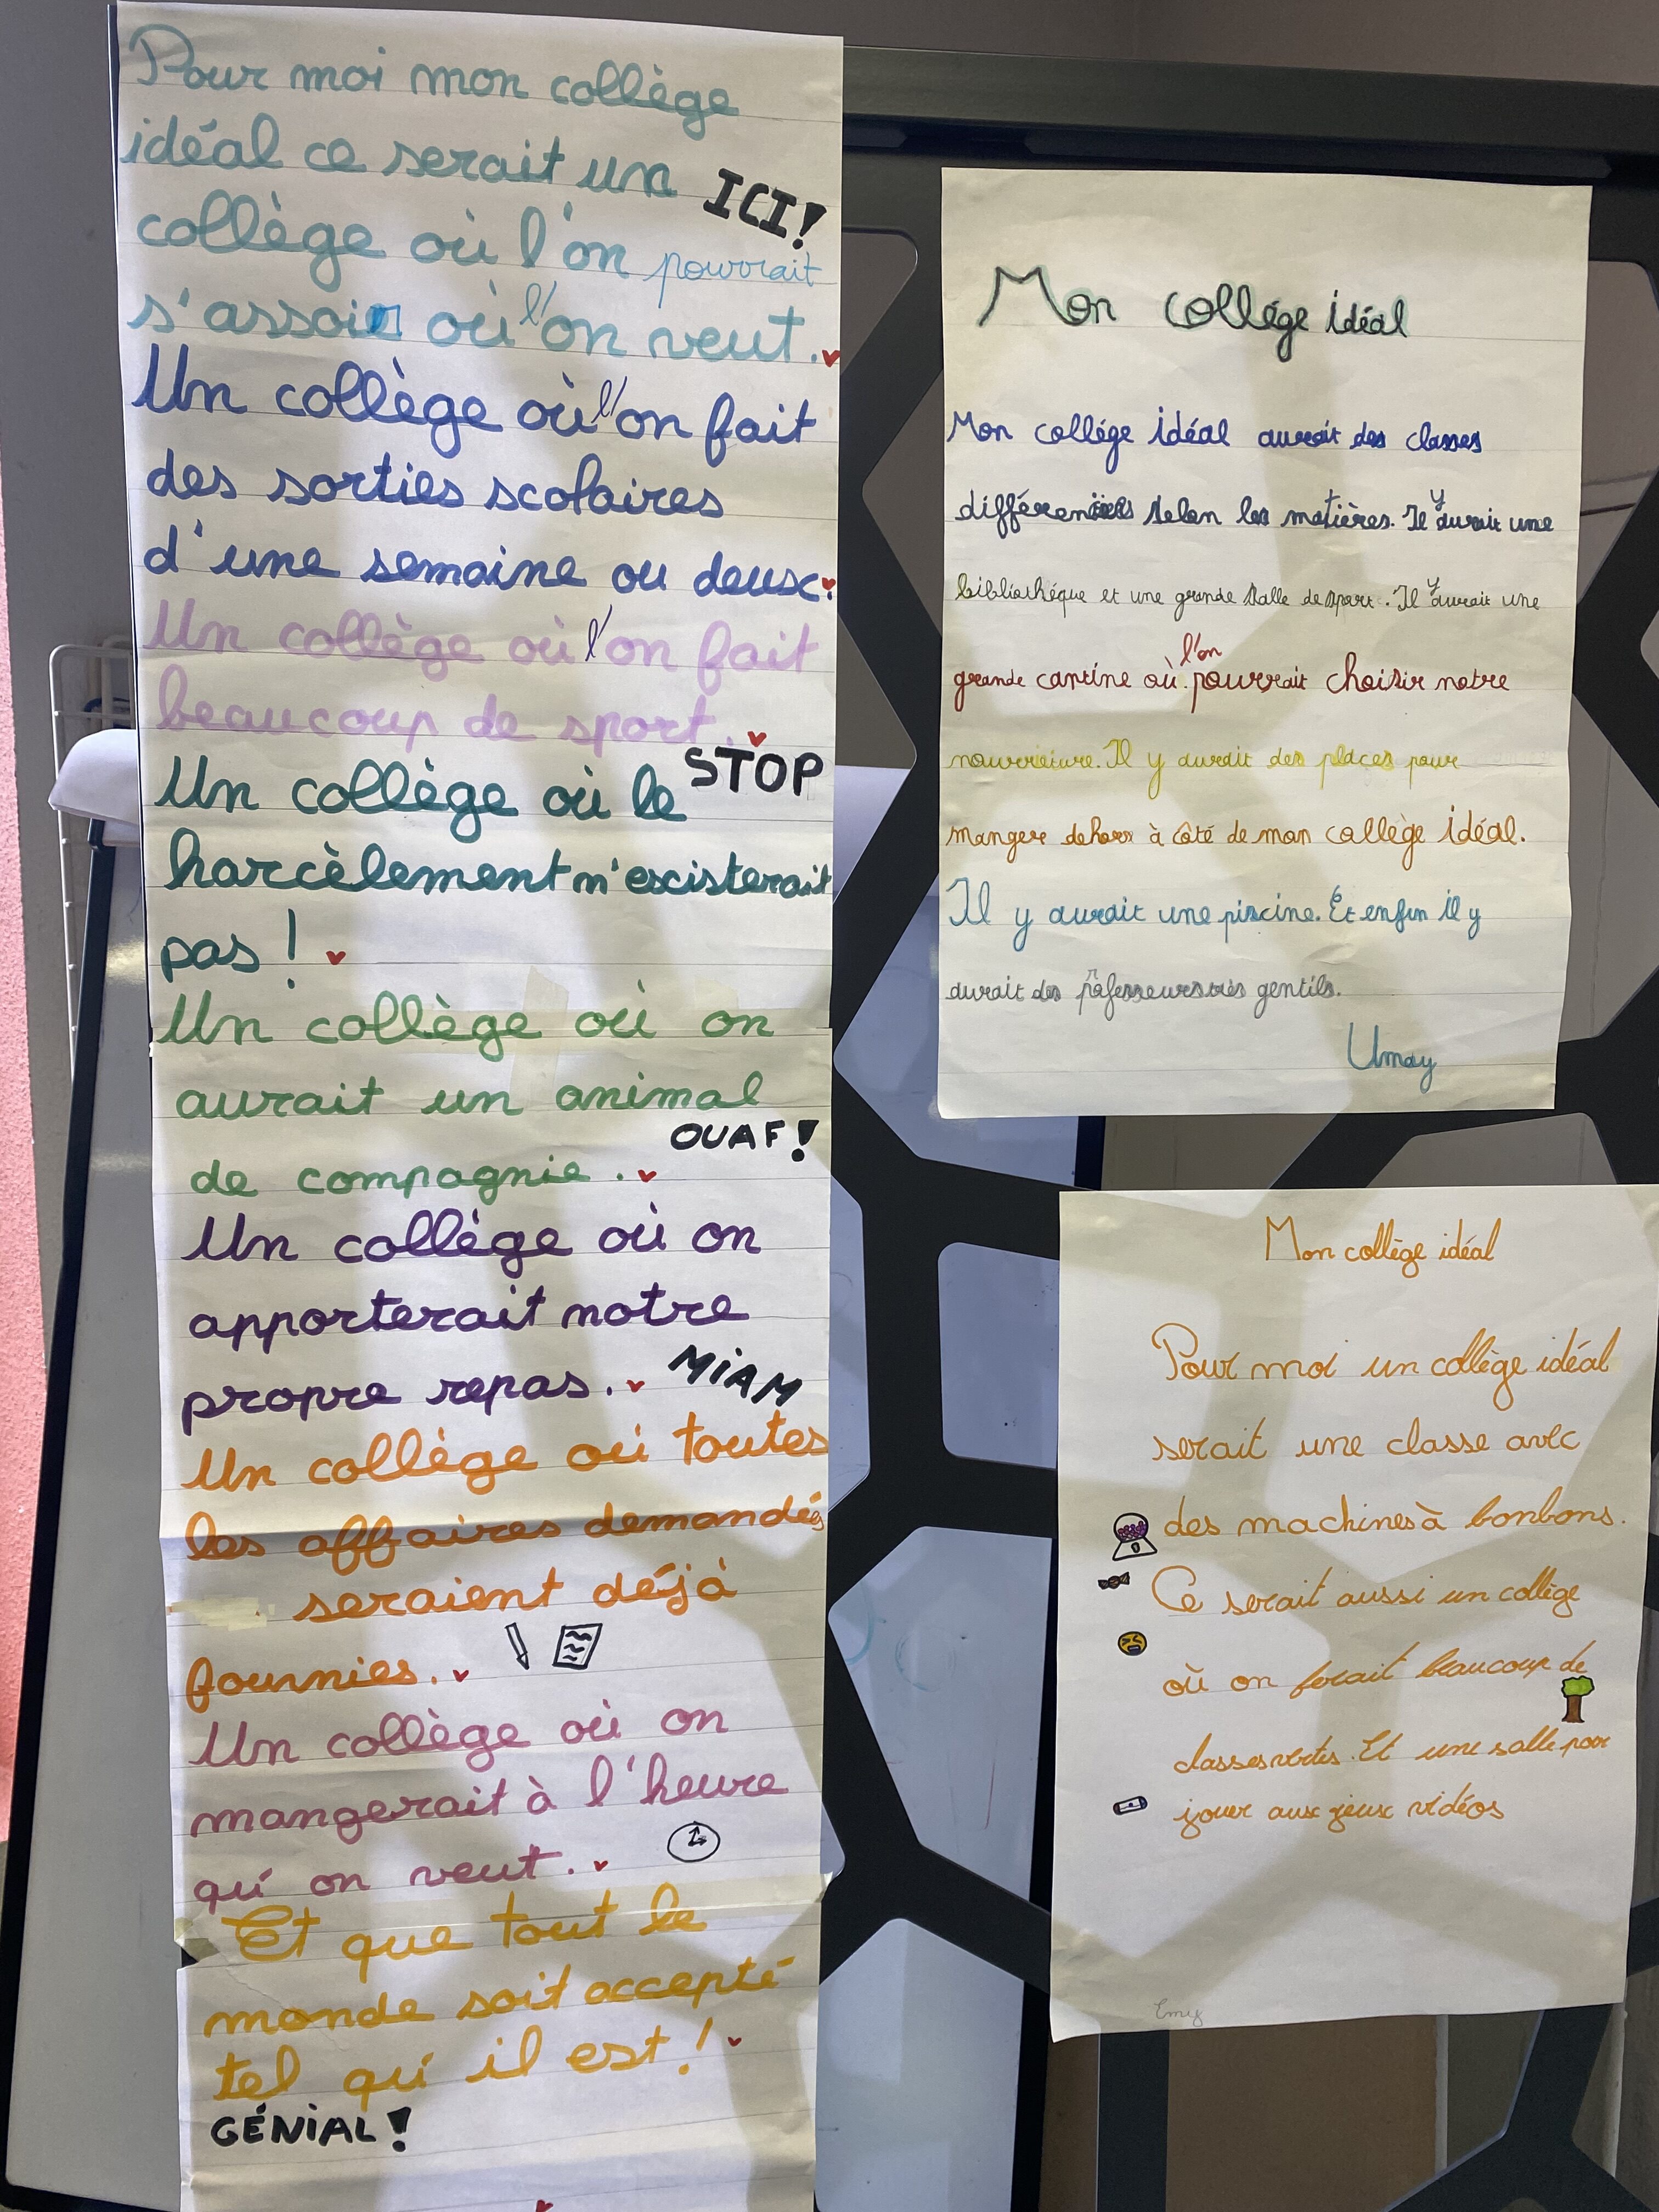 Pour moi mon collège
idéal ce serait un
ICI!
collège où l'on pourrait
s'assoir où l'on veut.
Un collège où l'on fait
des sorties scolaires
d'une semaine ou deux.
Un collège où l'on fait
beaucoup de sport.
STOP
Un collège où le
harcèlement n'existerait
pas !
Un collège où on
aurait un animal
OUAF!
de compagnie.
Un collège où on
apporterait notre
propre repas. MiAM
Un collège où toutes
les affaires demandés
seraient déjà
fournies.
Un collège où on
mangerait à l'heure
qu'on veut.
Et que tout le
monde soit accepté
tel qu'il est !
GÉNiAL!
Mon collége idéal
Mon collége idéal aurait des classes
selon les matières. Il y aurait une
bibliothéque et une grande salle de sport. Il y aurait une
grande cantine où l'on pourrait choisir notre
nourriture. Il y aurait des places pour
manger dehors à côté de mon collège idéal.
Il y aurait une piscine. Et enfin il y
aurait des professeurs très gentils.
Umay
Mon collège idéal
Pour moi un collège idéal
serait une classe avec
des machines à bonbons.
Ce serait aussi un collège
où on ferait beaucoup de
classes vertes. Et une salle pour
jouer aux jeux vidéos